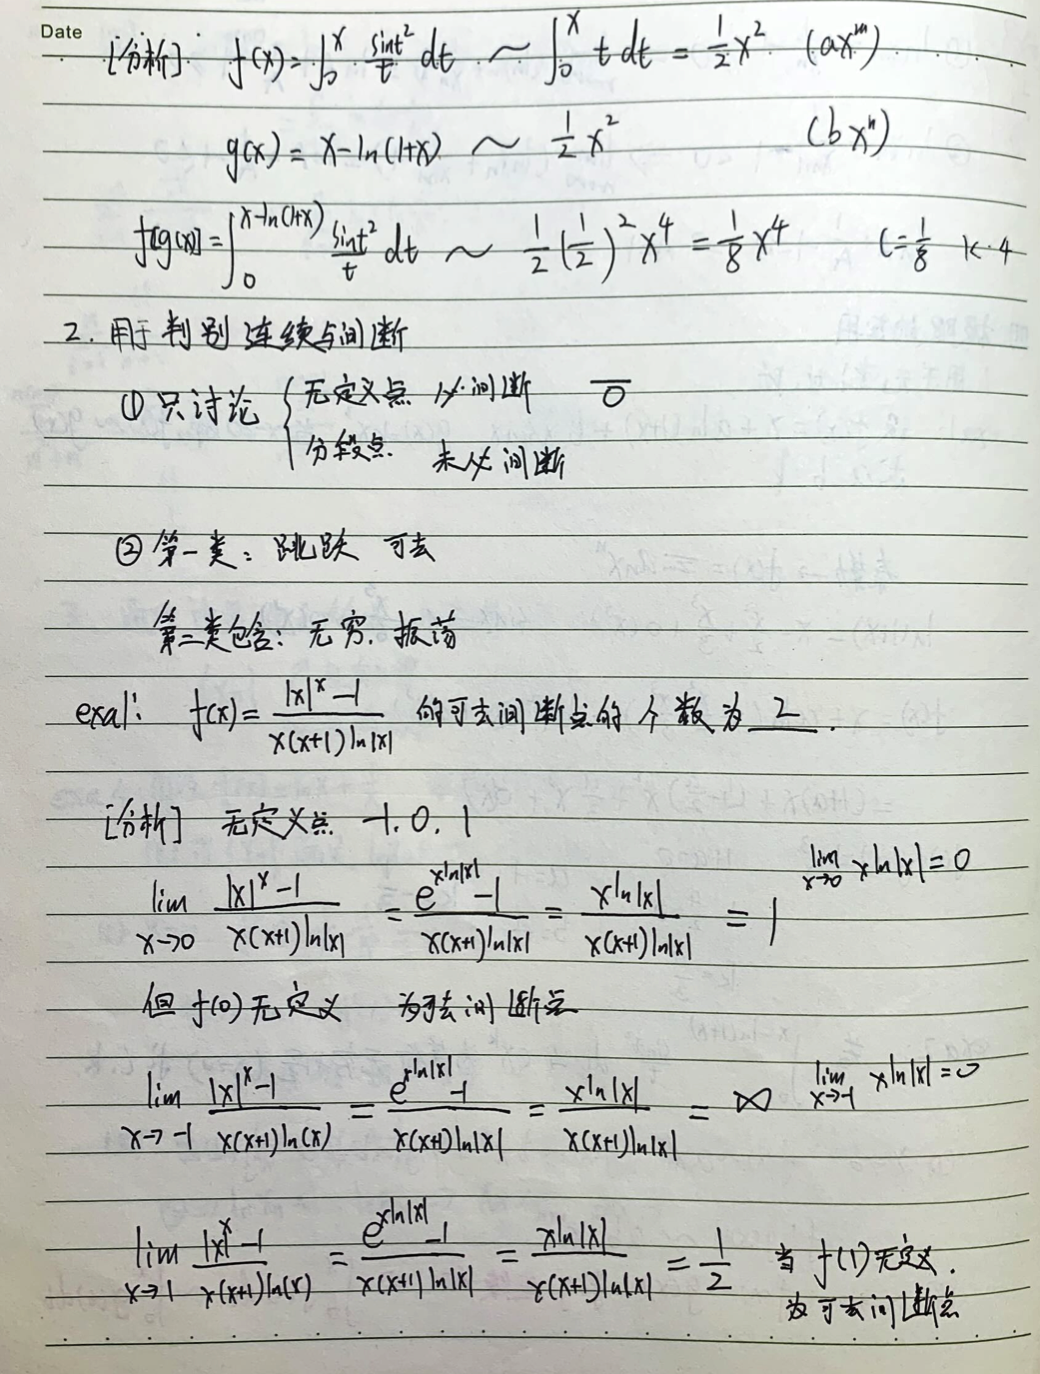 Date
[分析]: f(x)=∫₀ˣ sint²/t dt ~ ∫₀ˣ t dt = 1/2 x² (axᵐ)
g(x)= x-ln(1+x) ~ 1/2 x² (bxⁿ)
f[g(x)]=∫₀^(x-ln(1+x)) sint²/t dt ~ 1/2 (1/2)² x⁴ = 1/8 x⁴ C=1/8 k·4
2. 用于判别连续与间断
① 只讨论 { 无定义点 必间断 —/0
分段点. 未必间断
② 第一类: 跳跃 可去
第二类包含: 无穷. 振荡
exa1: f(x)= (|x|ˣ-1)/(x(x+1)ln|x|) 的可去间断点的个数为 2.
[分析] 无定义点 -1. 0. 1
lim x→0 (|x|ˣ-1)/(x(x+1)ln|x|) = (e^(xln|x|)-1)/(x(x+1)ln|x|) = xln|x|/(x(x+1)ln|x|) = 1 lim x→0 xln|x|=0
但 f(0)无定义 为可去间断点
lim x→-1 (|x|ˣ-1)/(x(x+1)ln(x)) = (e^(xln|x|)-1)/(x(x+1)ln|x|) = xln|x|/(x(x+1)ln|x|) = ∞ lim x→-1 xln|x|=0
lim x→1 (|x|ˣ-1)/(x(x+1)ln(x)) = (e^(xln|x|)-1)/(x(x+1)ln|x|) = xln|x|/(x(x+1)ln|x|) = 1/2 当 f(1)无定义.
为可去间断点